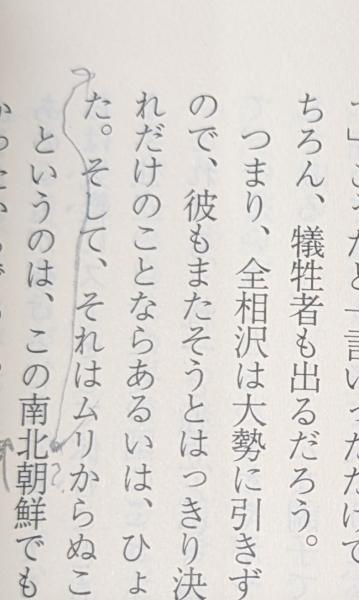 」こうだと一言いっただけで
ちろん、犠牲者も出るだろう。
つまり、全相沢は大勢に引きず
ので、彼もまたそうとはっきり決
れだけのことならあるいは、ひょ
た。そして、それはムリからぬこ
というのは、この南北朝鮮でも